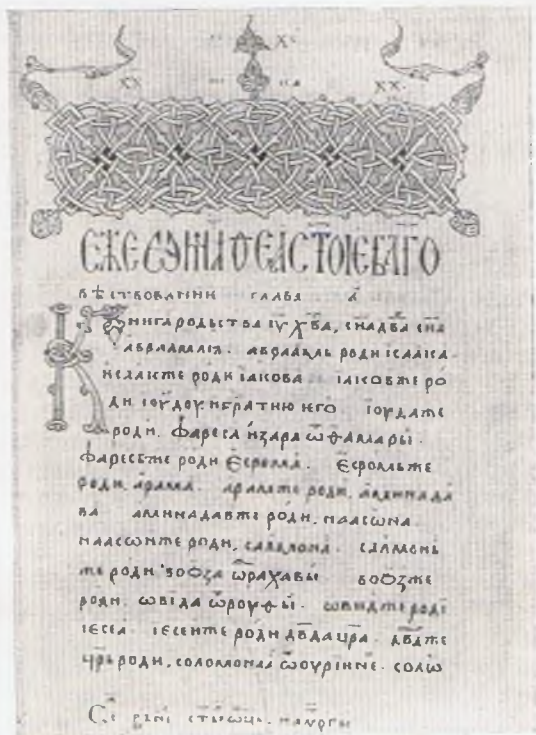 ЕЖЕ СТОІЕ БЛГО
вѣствованни глава а҃
Книга родьства іу҃ х҃ва, с҃на дв҃а с҃на
авраамлѧ. авраамь роди ісаака.
исаакже роди іакова іаковже ро
ди іоудоу и братию иего іоудаже
роди. фареса и зара ѿ ѳамары.
фаресьже роди есрома. есромьже
роди. арама. арамже роди. аминада
ва аминадавже роди. наасона.
наасонже роди, салмона. салмонь
же роди вооза ѿ рахавы воозже
роди. овида ѿ роуѳы. овидже роди
іесеа. іесеиже роди дв҃да цр҃а. дв҃дже
цр҃ь роди, соломонаа ѿ оуриине. соло